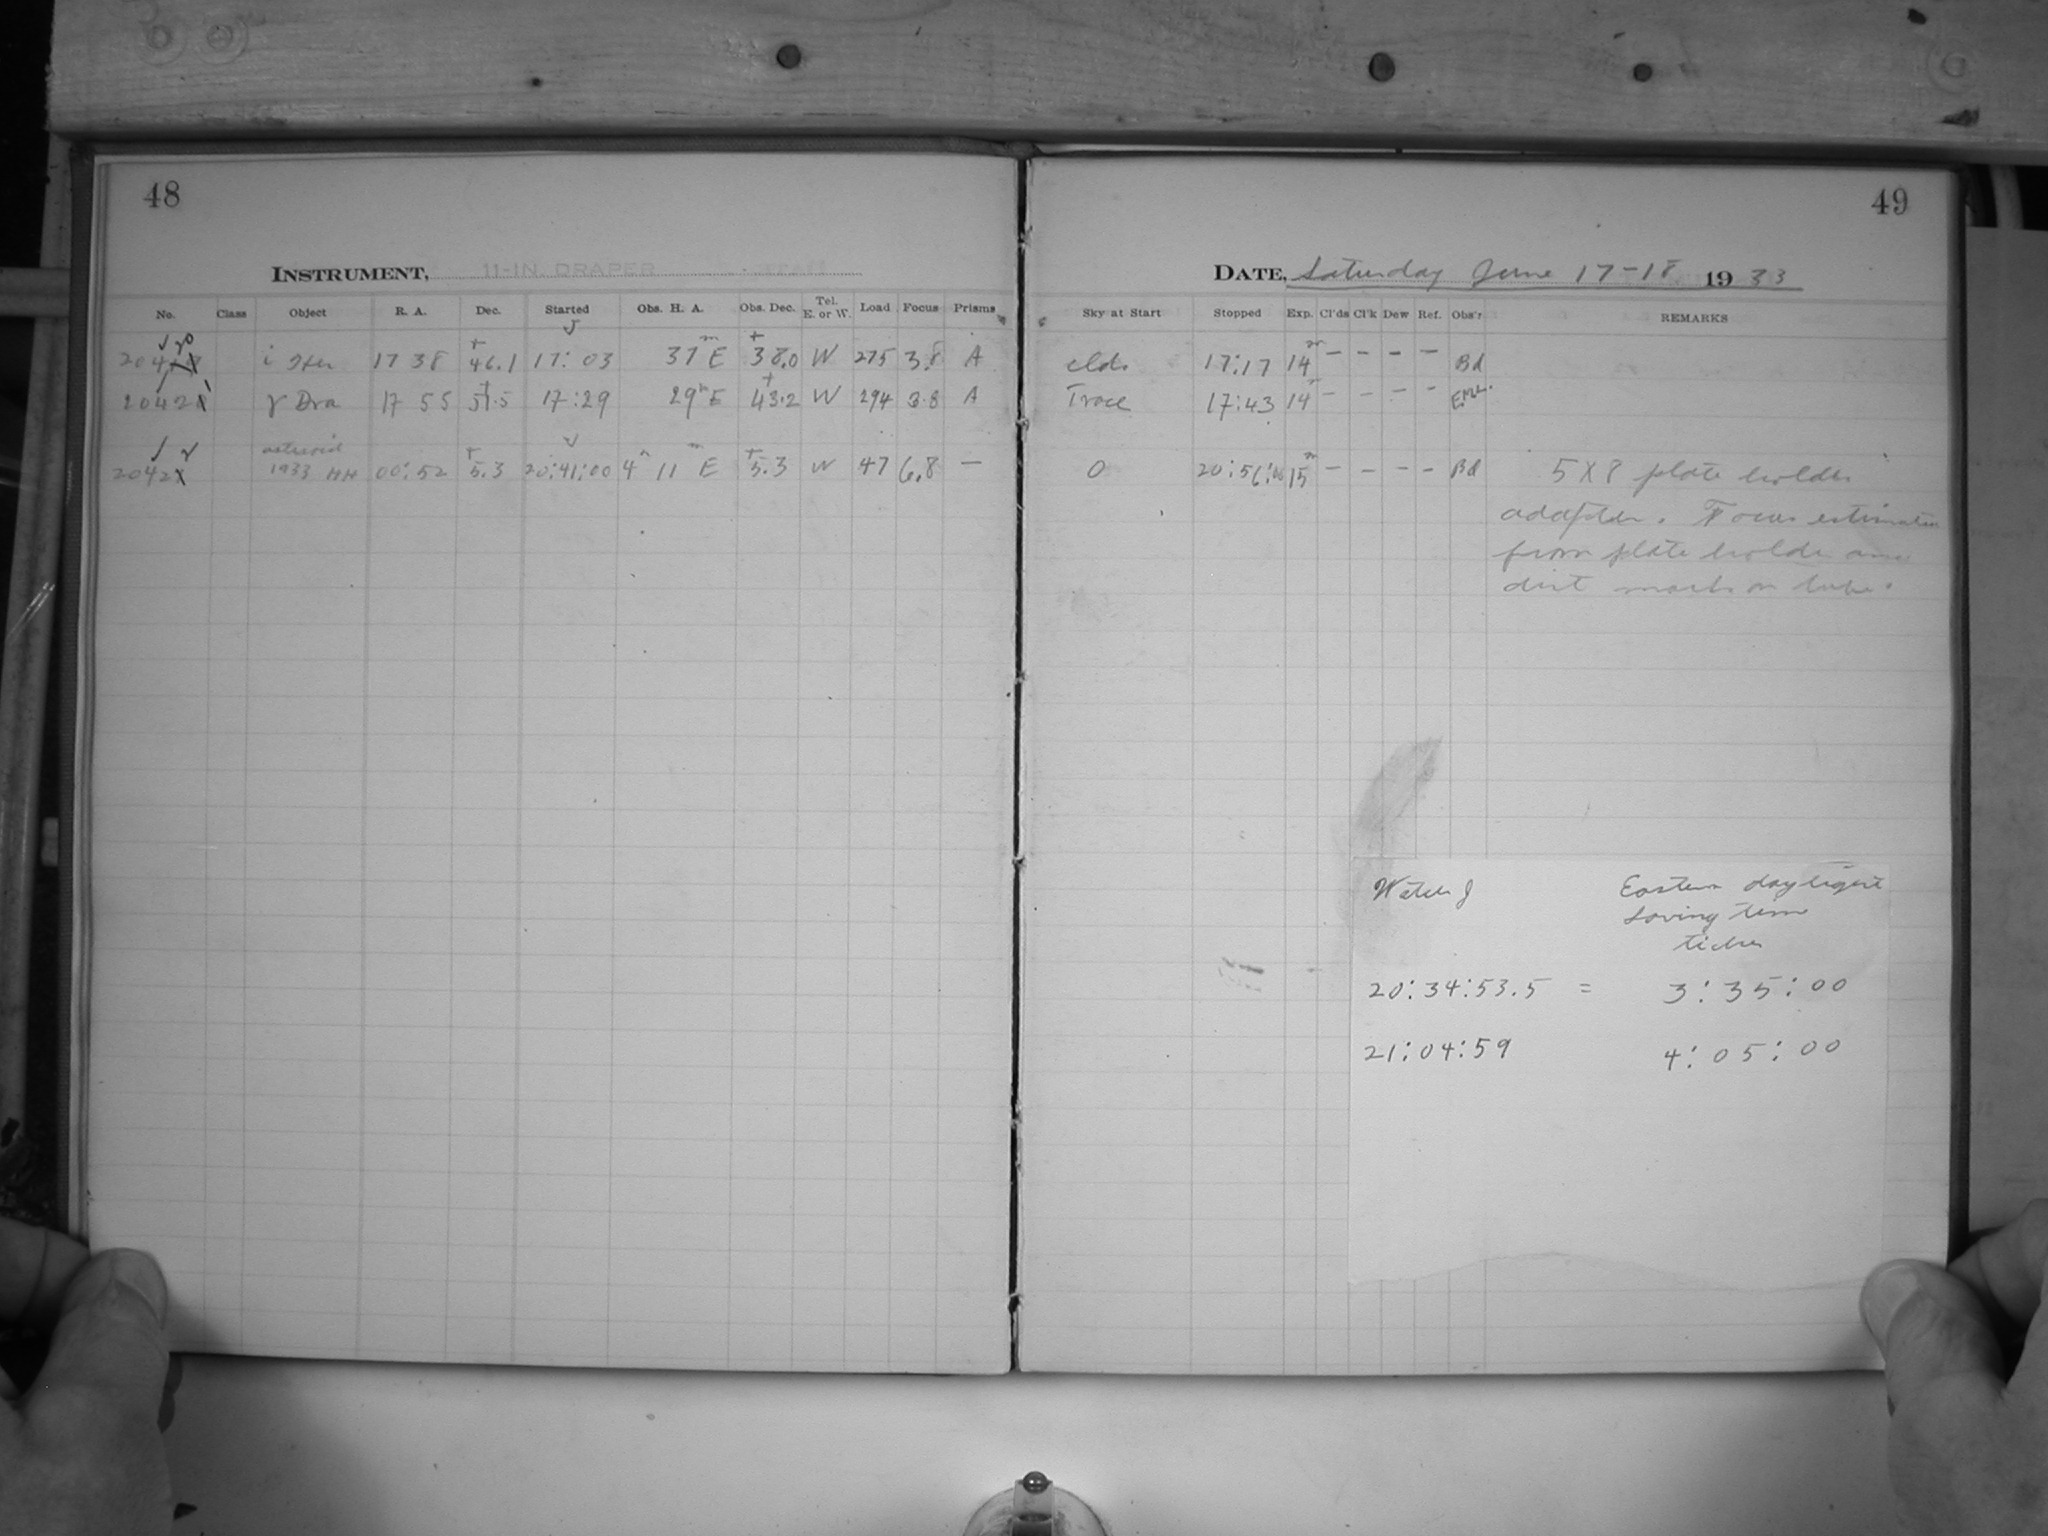 48
INSTRUMENT, 11-IN. DRAPER
No. Class Object R. A. Dec. Started Obs. H. A. Obs. Dec. Tel. E. or W. Load Focus Prisms
J
i Her 17 38 +46.1 17:03 37m E +38.0 W 275 3.8 A
γ Dra 17 55 +51.5 17:29 29m E +43.2 W 294 3.8 A
asteroid
1933 HH 00:52 +5.3 20:41:00 4h 11m E +5.3 W 47 6.8 —
49
DATE, Saturday June 17-18 1933
Sky at Start Stopped Exp. Cl'ds Cl'k Dew Ref. Obs'r REMARKS
clds 17:17 14m - - - - Bd
Trace 17:43 14m - - - -
0 20:56:00 15m - - - - Bd 5 X 8 plate holder
adapter. Focus estimated
from plate holder and
dirt marks on tube.
Watch J Eastern daylight
Saving time
ticks
20:34:53.5 = 3:35:00
21:04:59 4:05:00